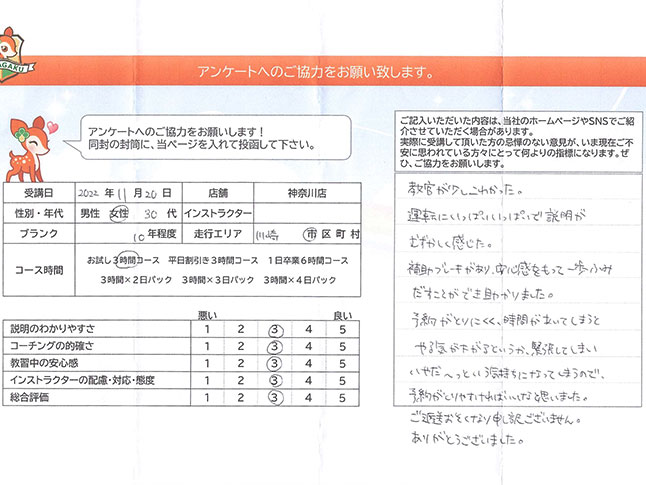 AGAKU
アンケートへのご協力をお願い致します。
アンケートへのご協力をお願いします！
同封の封筒に、当ページを入れて投函して下さい。
ご記入いただいた内容は、当社のホームページやSNSでご紹
介させていただく場合があります。
実際に受講して頂いた方の忌憚のない意見が、いま現在ご不
安に思われている方々にとって何よりの指標になります。ぜ
ひ、ご協力をお願いします。
受講日 2022年 11月 20日 店舗 神奈川店
性別・年代 男性 女性 30代 インストラクター
ブランク 10年程度 走行エリア 川崎 市区町村
コース時間
お試し3時間コース 平日割引き3時間コース 1日卒業6時間コース
3時間×2日パック 3時間×3日パック 3時間×4日パック
悪い 良い
説明のわかりやすさ 1 2 3 4 5
コーチングの的確さ 1 2 3 4 5
教習中の安心感 1 2 3 4 5
インストラクターの配慮・対応・態度 1 2 3 4 5
総合評価 1 2 3 4 5
教官が少しこわかった。
運転にいっぱいいっぱいで説明が
むずかしく感じた。
補助ブレーキがあり、安心感をもって一歩ふみ
だすことができ助かりました。
予約がとりにくく、時間が空いてしまうと
やる気が下がるというか、緊張してしまい
いやだ〜っという気持ちになってしまうので、
予約がとりやすければいいなと思いました。
ご返送おそくなり申し訳ございません。
ありがとうございました。